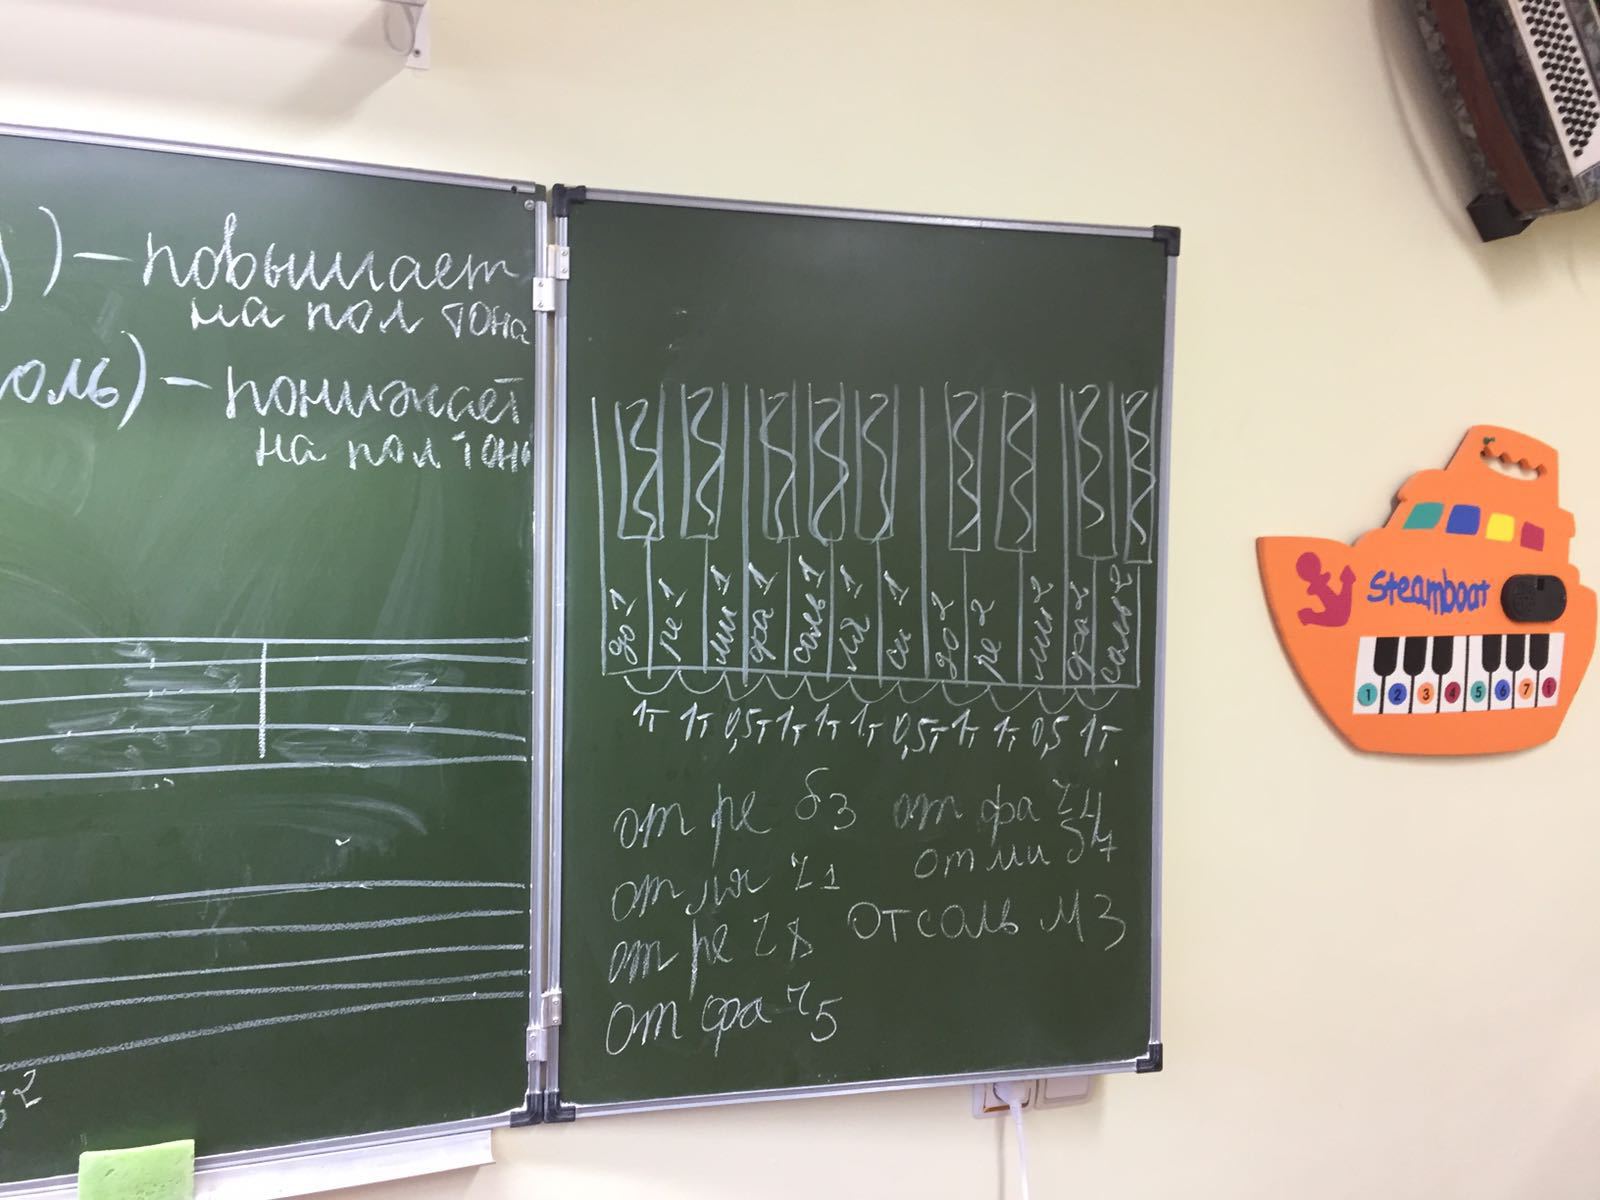 ) – повышает
на пол тона
оль) – понижает
на пол тон
до 1 ре 1 ми 1 фа 1 соль 1 ля 1 си 1 до 2 ре 2 ми 2 фа 2 соль 2
1т 1т 0,5т 1т 1т 1т 0,5т 1т 1т 0,5 1т.
от ре б3
от ля ч1
от ре ч8
от фа ч5
от фа ч4
от ми б7
от соль м3
2
Steamboat
1 2 3 4 5 6 7 1